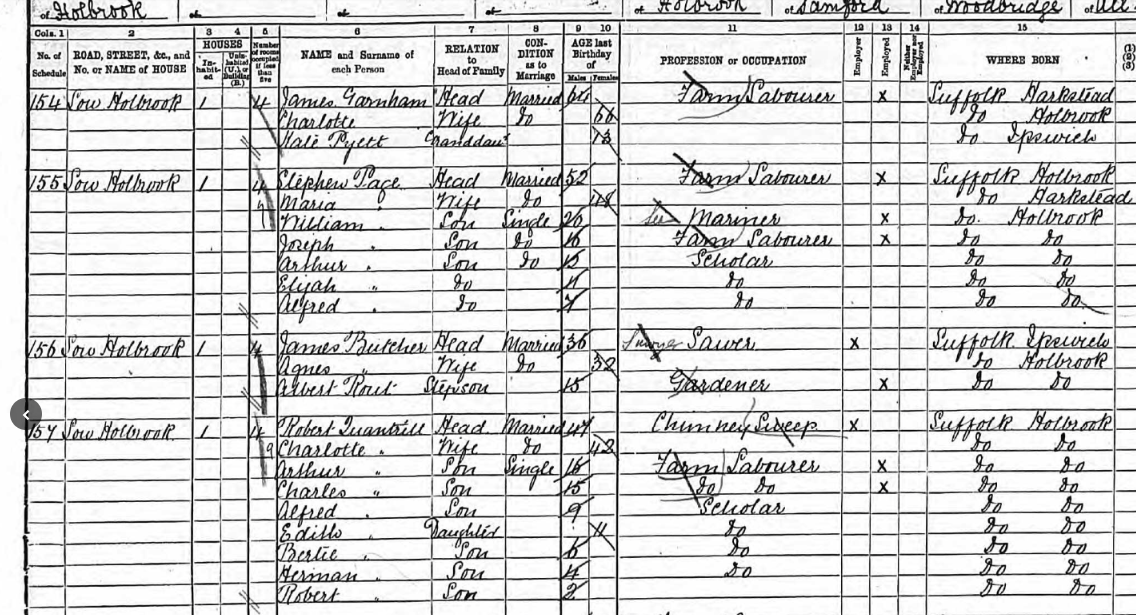 of Holbrook of of of of Holbrook of Samford of Woodbridge of All
Cols. 1 2 3 4 5 6 7 8 9 10 11 12 13 14 15
No. of Schedule ROAD, STREET, &c., and No. or NAME of HOUSE HOUSES Inhabited Uninhabited (U.), or Building (B.) Number of rooms occupied if less than five NAME and Surname of each Person RELATION to Head of Family CONDITION as to Marriage AGE last Birthday of Males Females PROFESSION or OCCUPATION Employer Employed Neither Employer nor Employed WHERE BORN (1) (2) (3)
154 Low Holbrook 1 4 James Garnham Head Married 64 Farm Labourer X Suffolk Harkstead
Charlotte " Wife Do 66 Do Holbrook
Kate Pyett Granddaur 13 Do Ipswich
155 Low Holbrook 1 4 Stephen Page Head Married 52 Farm Labourer X Suffolk Holbrook
Maria " Wife Do 48 Do Harkstead
William " Son Single 20 Mariner X Do. Holbrook
Joseph " Son Do 16 Farm Labourer X Do Do
Arthur " Son Do 15 Scholar Do Do
Elijah " Do 11 Do Do Do
Alfred " Do 7 Do Do Do
156 Low Holbrook 1 4 James Butcher Head Married 36 Sawyer Sawer X Suffolk Ipswich
Agnes " Wife Do 32 Do Holbrook
Albert Rout Stepson 15 Gardener X Do Do
157 Low Holbrook 1 4 Robert Quantrill Head Married 47 Chimney Sweep X Suffolk Holbrook
9 Charlotte " Wife Do 42 Do Do
Arthur " Son Single 16 Farm Labourer X Do Do
Charles " Son 15 Do Do X Do Do
Alfred " Son 9 Scholar Do Do
Edith " Daughter 11 Do Do Do
Bertie " Son 6 Do Do Do
Herman " Son 4 Do Do Do
Robert " Son 2 Do Do